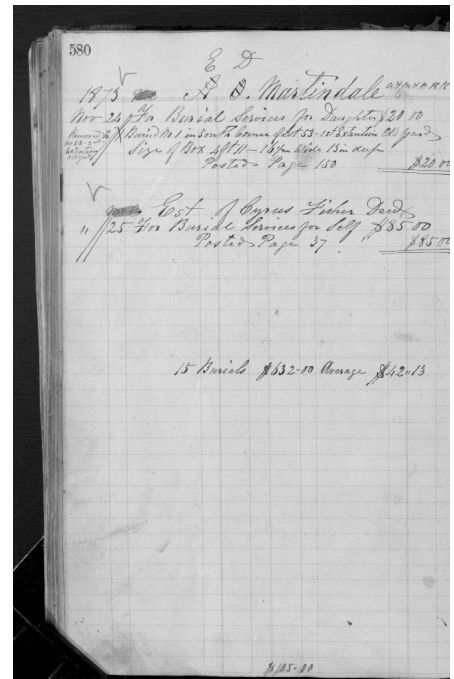 580
E D
1873 A. D. Martindale
Nov 24 For Burial Services for Daughter $20.00
Buried No 1 in South Corner of Lot 53 - 1st Extention Old yard
Size of Box 4 ft 11 - 16 in Wide 13 in deep
Posted Page 150 $20.00
Est of Cyrus Fisher Decd
" 25 For Burial Services for Self $85.00
Posted Page 37 $85.00
15 Burials $632-00 Average $42.13
$105-00